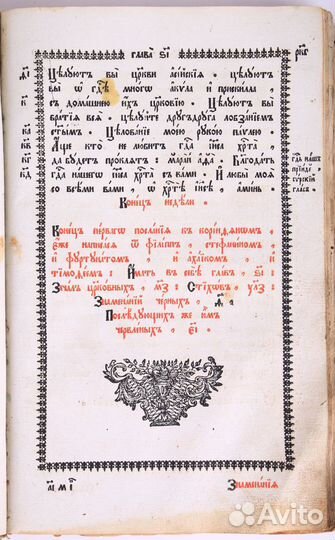 глава ѕ҃і
рк҃г
Цѣлуютъ вы̀ цр҃кви асі́йскія . цѣлуютъ
вы̀ ѡ гд҇ѣ многѡ акѵла и прискилла ,
съ домашнею ихъ цр҃ковію . Цѣлуютъ вы̀
братія всѧ̀ . цѣлуйте другъ друга лобзаніемъ
ст҃ымъ . Цѣлованіе моею рукою паѵлею
Аще кто не любитъ гд҇а іи҃са хр҇та̀
да будетъ проклятъ : маранъ аѳа . Благодать
гд҇а нашегѡ іи҃са хр҇та̀ съ вами . И любы̀ моя
со всѣми вами , ѡ хр҇тѣ̀ іи҃сѣ , аминь .
Конецъ недѣли .
к҃
к҃а
к҃в
к҃г
к҃д
гд҇ь нашъ
прїиде
сирскїй
гласъ
Конецъ первагѡ посланія къ корінѳяномъ ,
еже написася ѿ філіппъ , стефаниномъ ,
и фуртунатомъ , и ахаикомъ , и
тімоѳеемъ . Имать въ себѣ главъ , ѕ҃і :
Зачалъ церковныхъ , м҃з : Стіхѡвъ , у҃лз :
Знаменаній черныхъ , а҃ .
Послѣдующихъ же имъ
червленыхъ , е҃і
Знаменанїѧ
Avito